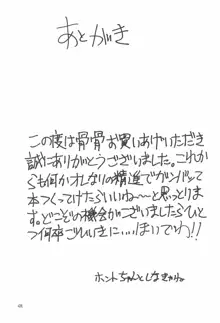 あとがき
この度は骨骨お買いあげいただき
誠にありがとうございました。これか
らも何かオレなりの精進でガンバって
本つくってけたらいいね〜〜と思っとりま
す。どこぞの機会がございましたらひと
つ何卒ごひいきに、、、ほいでわ!!
ホントちゃんとしなきゃ。